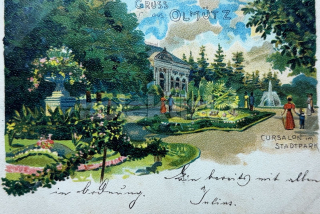 GRUSS
aus OLMÜTZ
CURSALON im
STADTPARK
bereits mit allem
in Ordnung.
Julius.